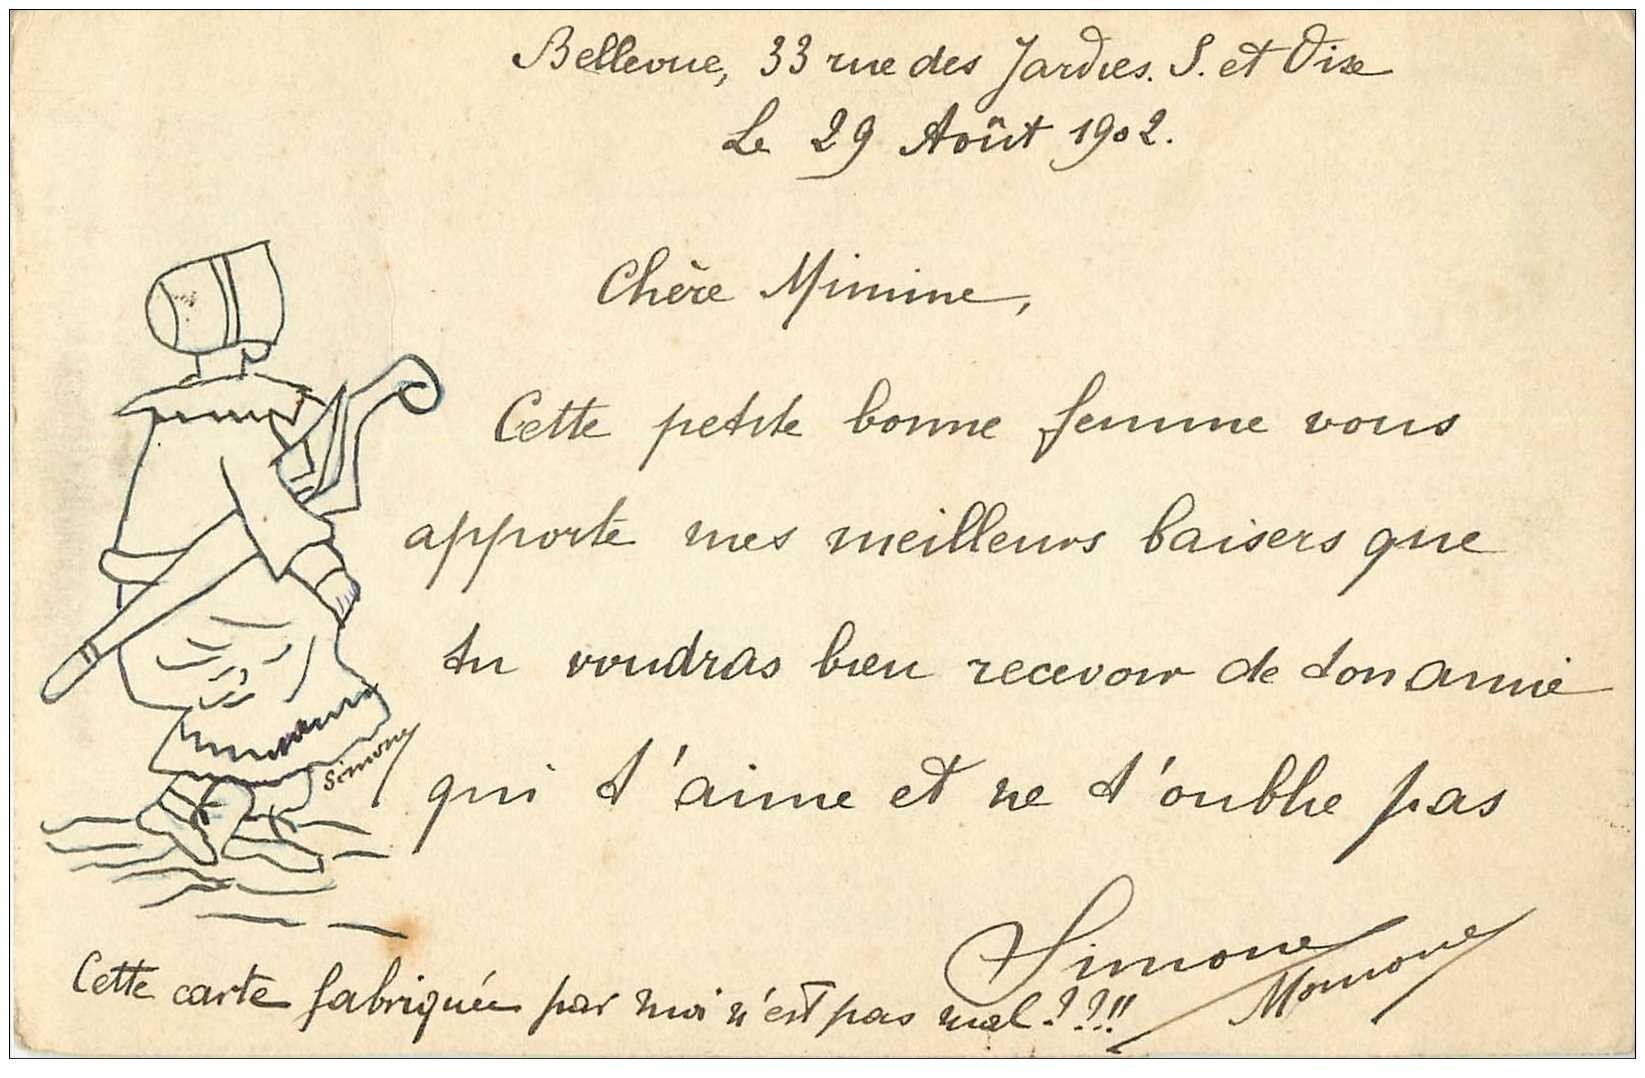 Bellevue, 33 rue des Jardies. S. et Oise
Le 29 Août 1902.
Chère Mimine,
Cette petite bonne femme vous
apporte mes meilleurs baisers que
tu voudras bien recevoir de ton amie
qui t'aime et ne t'oublie pas
Simone
Simone
Momone
Cette carte fabriquée par moi n'est pas mal.???!!